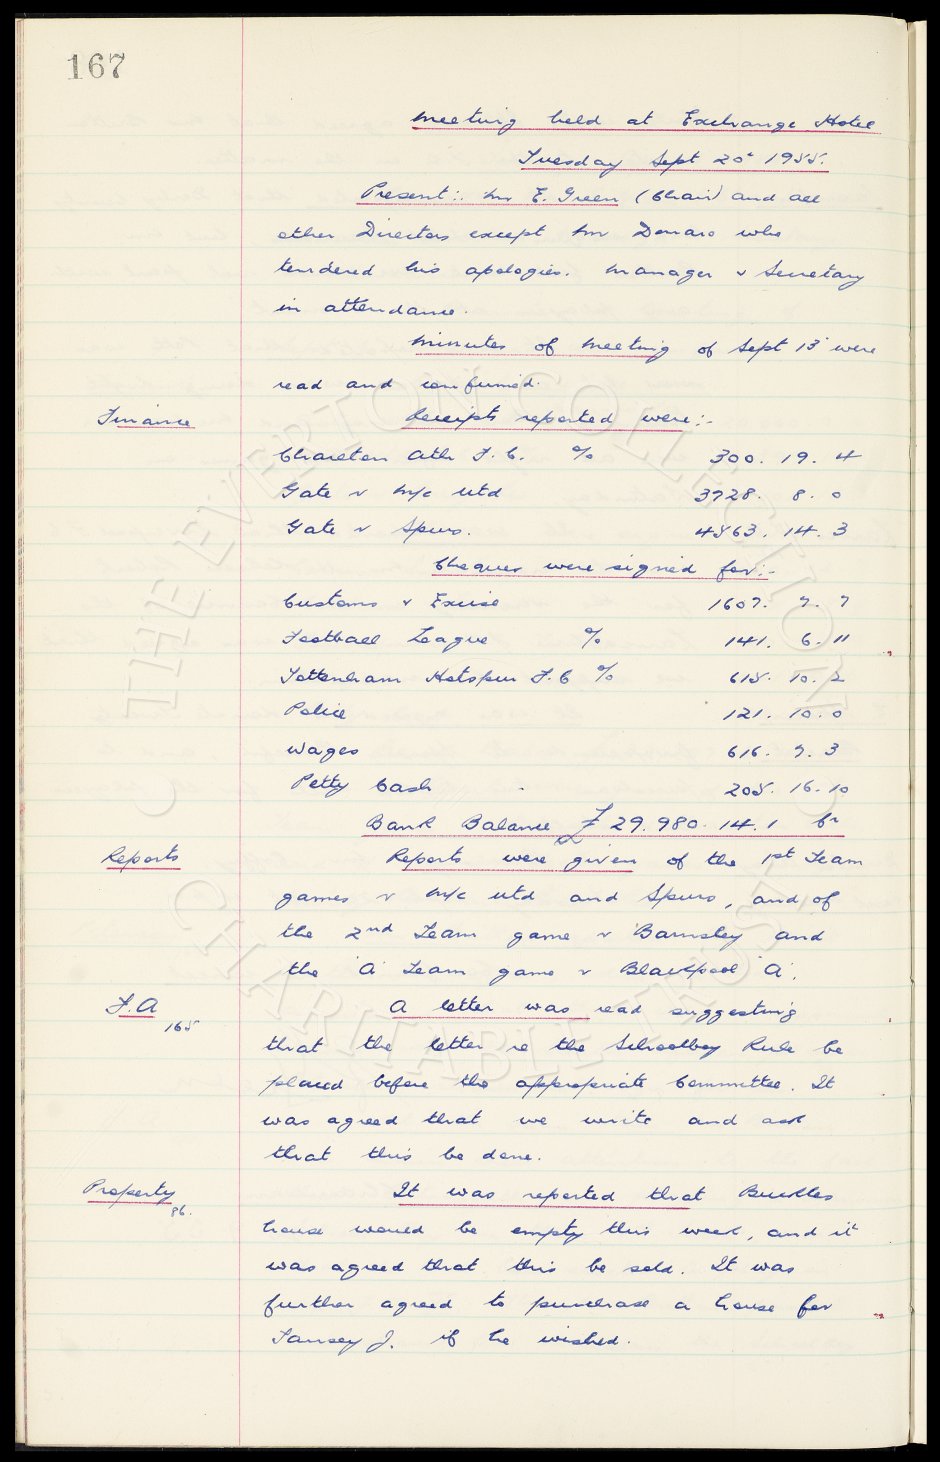 167
Meeting held at Exchange Hotel
Tuesday Sept 20th 1955.
Present:: Mr E. Green (Chair) and all
other Directors except Mr Donaro who
tendered his apologies. Manager & Secretary
in attendance.
Minutes of Meeting of Sept 13th were
read and confirmed.
Finance
Receipts reported were:-
Charlton Ath F.C. % 300. 19. 4
Gate v M/c Utd 3728. 8. 0
Gate v Spurs. 4563. 14. 3
Cheques were signed for:-
Customs & Excise 1607. 7. 7
Football League % 141. 6. 11
Tottenham Hotspur F.C % 615. 10. 2
Police 121. 10. 0
Wages 616. 7. 3
Petty Cash 205. 16. 10
Bank Balance £29.980. 14. 1 Cr
Reports
Reports were given of the 1st Team
games v M/c Utd and Spurs, and of
the 2nd Team game v Barnsley and
the 'A' Team game v Blackpool 'A'.
F.A
165
A letter was read suggesting
that the letter re the Schoolboy Rule be
placed before the appropriate Committee. It
was agreed that we write and ask
that this be done.
Property
86.
It was reported that Buckles
house would be empty this week, and it
was agreed that this be sold. It was
further agreed to purchase a house for
Tansey J. if he wished.
THE EVERTON COLLECTION
CHARITABLE TRUST